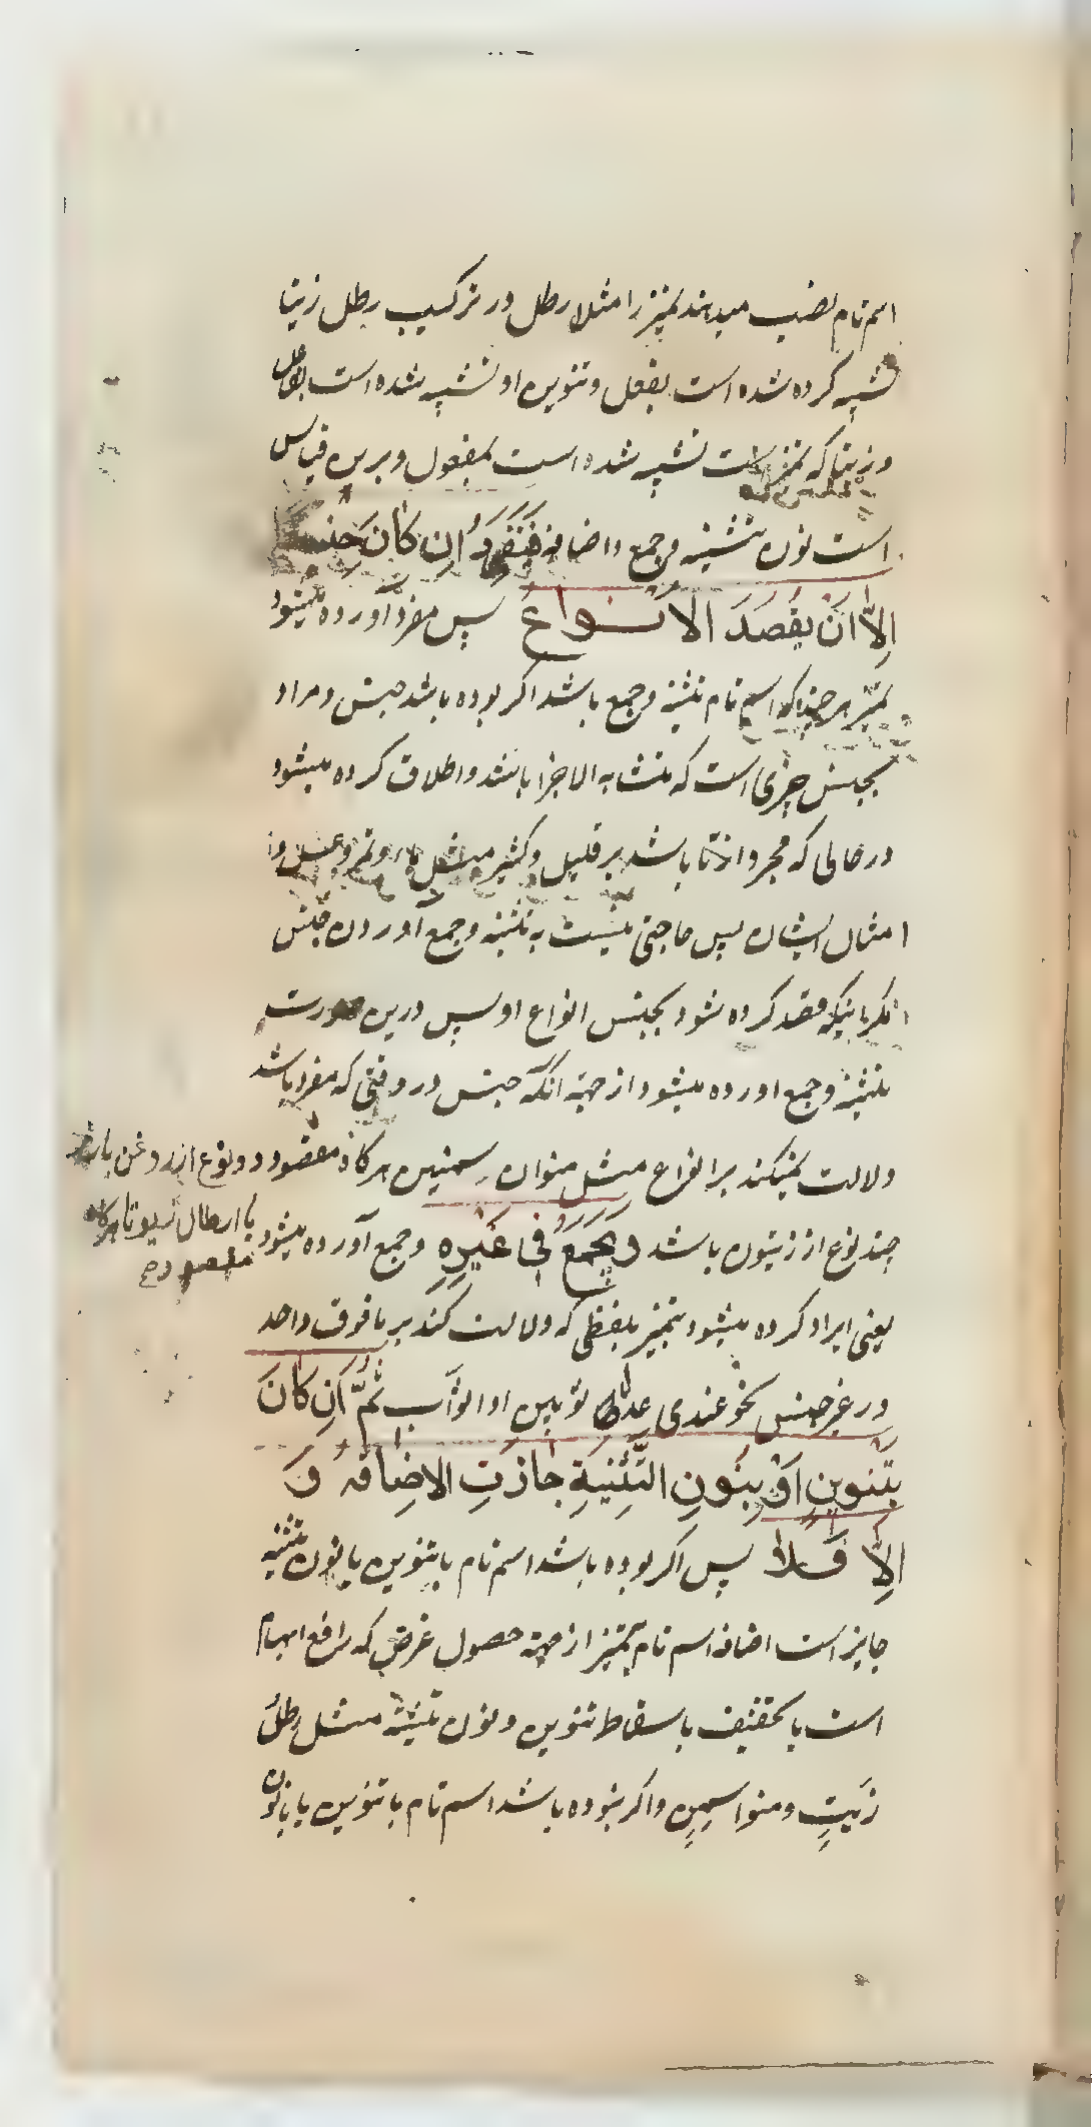 اسم تام نصب میدهند تمیز را مثلا رطل در ترکیب رطل زیتا
تشبیه کرده شده است بفعل و تنوین او تشبیه شده است بفاعل
و زیتا که تمیز است تشبیه شده است بمفعول و برین قیاس
است نون تثنیه و جمع و اضافه فَیُفْرَدُ اِن کانَ جِنساً
اِلاّ اَنْ یُقصَدَ الاَنواعُ پس مفرد آورده میشود
تمیز هر چند که اسم تام تثنیه و جمع باشد اگر بوده باشد جنس و مراد
بجنس چیزی است که متشابه الاجزا باشد و اطلاق کرده میشود
در حالی که مجرد از تا باشد بر قلیل و کثیر مثل ماء و تمر و عسل و
امثال ایشان پس حاجتی نیست به تثنیه و جمع آوردن جنس
مگر اینکه قصد کرده شود بجنس انواع او پس درین صورت
تثنیه و جمع اورده میشود از جهة آنکه جنس در وقتی که مفرد باشد
دلالت نمیکند بر انواع مثل منوان سمنین هرگاه مقصود دو نوع از روغن باشد
یا ارطال زیوتا هرگاه مقصود
چند نوع از زیتون باشد وَیُجمَعُ فی غَیرِهِ و جمع آورده میشود
یعنی ایراد کرده میشود تمیز بلفظی که دلالت کند بر ما فوق واحد
در غیر جنس نحو عندی عدل ثوبین او اثواب ثُمَّ اِن کانَ
بِتَنوینٍ اَوْ بِنُونِ التَّثنِیَةِ جازَتِ الاِضافَةُ وَ
اِلاّ فَلا پس اگر بوده باشد اسم تام با تنوین یا نون تثنیه
جایز است اضافه اسم تام بتمیز از جهة حصول غرض که رافع ابهام
است با تخفیف باسقاط تنوین و نون تثنیه مثل رطلُ
زیتٍ و منوا سمنٍ و اگر نبوده باشد اسم تام با تنوین یا با نون